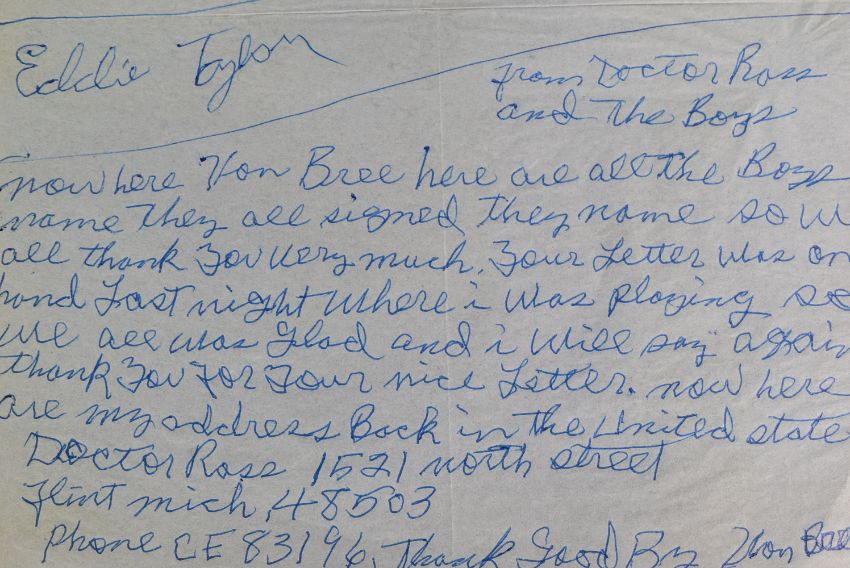 Eddie Taylor
from Doctor Ross
and The Boys
now here Von Bree here are all the Boys
name They all signed They name so w
all thank You very much. Your Letter was on
hand Last night where i was playing so
we all was Glad and i will say again
thank You For Your nice Letter. now here
are my address Back in the United state
Doctor Ross 1521 north street
Flint mich, 48503
Phone CE 83196, Thank Good By Von Bree